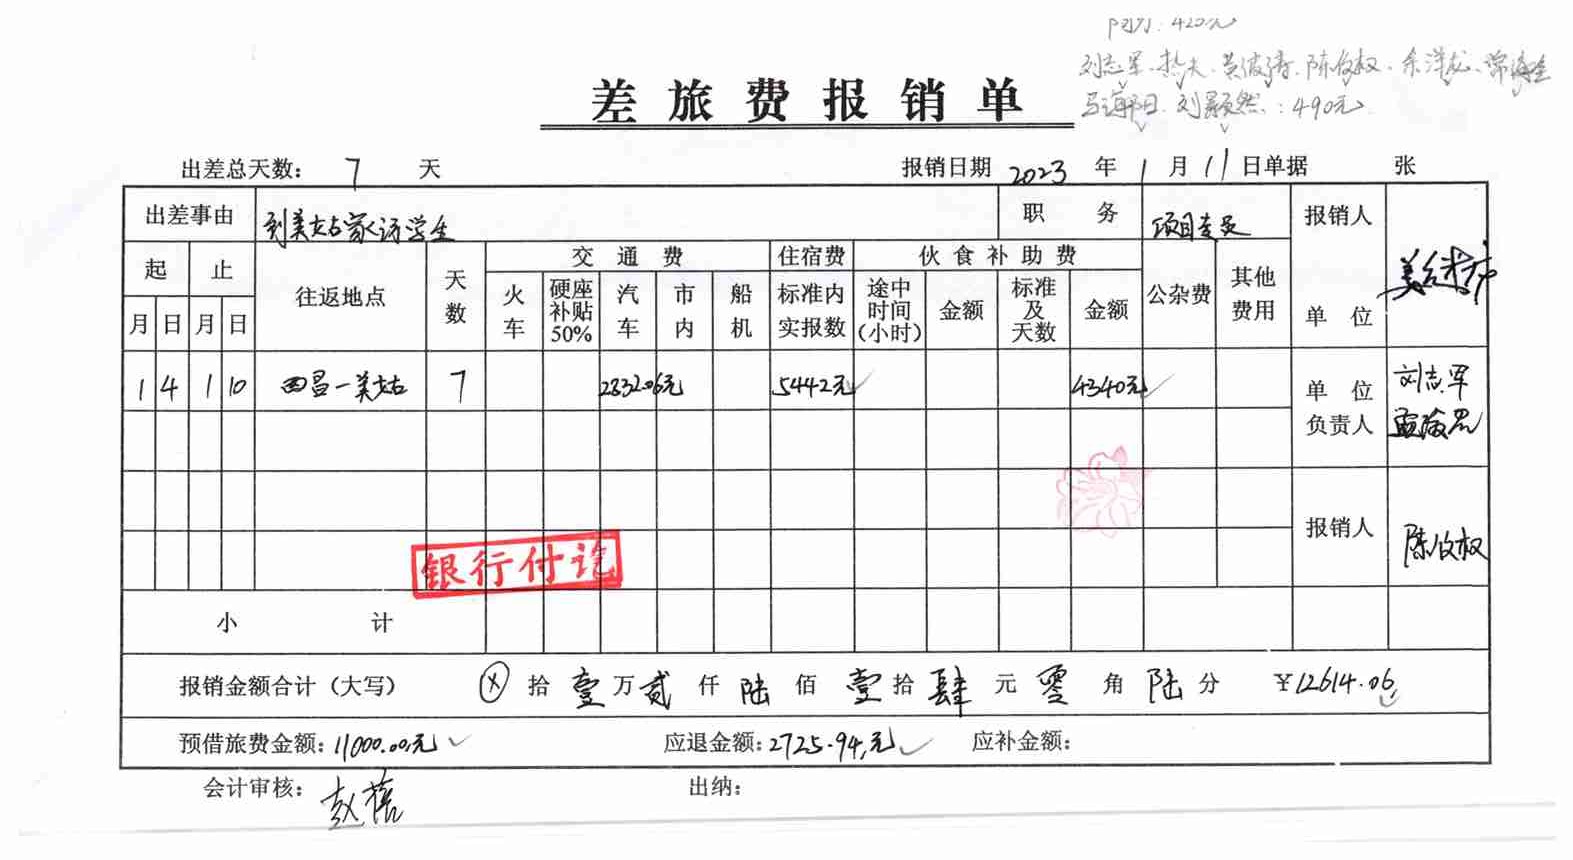 420元
刘志军、热夫、黄俊清、陈俊权、余洋龙、
刘颢然:490元
差旅费报销单
出差总天数: 7 天 报销日期 2023 年 1 月 11 日单据 张
出差事由 到美姑家访学生 职 务 项目专员 报销人
起 止 往返地点 天数 交通费 住宿费 伙食补助费 公杂费 其他费用 单 位
月 日 月 日 火车 硬座补贴50% 汽车 市内 船机 标准内实报数 途中时间(小时) 金额 标准及天数 金额
1 4 1 10 西昌—美姑 7 2832.06元 5442元 4340元 单 位负责人 刘志军
报销人 陈俊权
银行付讫
小 计
报销金额合计(大写) ⊗ 拾 壹 万 贰 仟 陆 佰 壹 拾 肆 元 零 角 陆 分 ¥12614.06
预借旅费金额: 11000.00元 应退金额: 2725.94元 应补金额:
会计审核: 赵蓓 出纳: